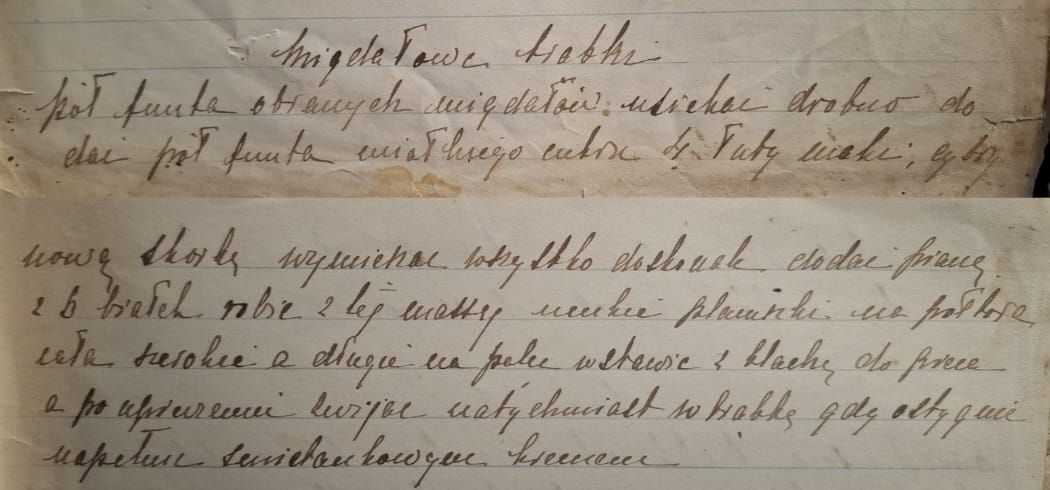 Migdałowe trabki
pół funta obranych migdałów usiekać drobno do
dać pół funta miałkiego cukru 4 łuty maki, cytry
nową skorkę wymieszac wszystko doskonale dodać pianę
z 6 białek robic z tej massy cienkie placuszki na półtora
cala szerokie a długie na palec wstawic z blachą do pieca
a po upieczeniu zwijac natychmiast w trabkę gdy ostygnie
napełnic smietankowym kremem